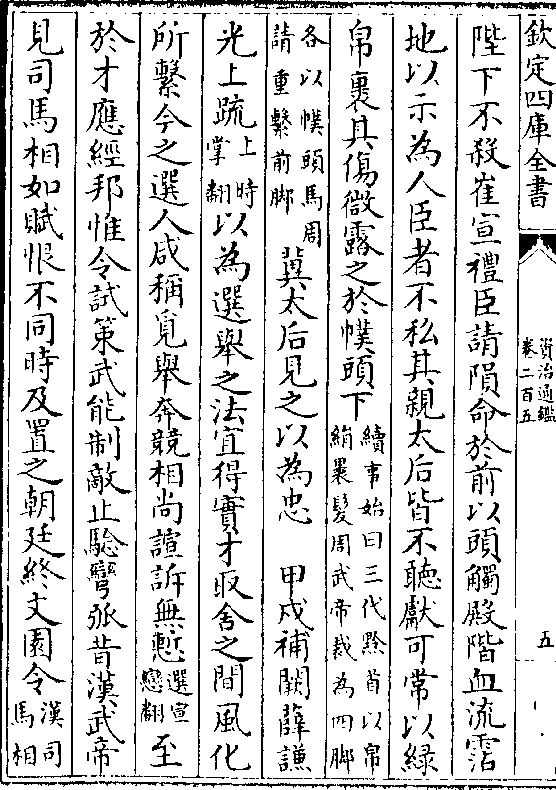 欽定四庫全書
資治通鑑
卷二百五
五
陛下不殺崔宣禮臣請隕命於前以頭觸殿階血流霑
地以示為人臣者不私其親太后皆不聽獻可常以緑
帛裹其傷微露之於幞頭下
續事始曰三代黔首以帛
絹裹髮周武帝裁為四脚
各以幞頭馬周
請重繫前脚
冀太后見之以為忠　甲戌補闕薛謙
光上疏
上時
掌翻
以為選舉之法宜得實才取舍之間風化
所繫今之選人咸稱覓舉奔競相尚諠訴無慙
選宣
戀翻
至
於才應經邦惟令試策武能制敵止驗彎弧昔漢武帝
見司馬相如賦恨不同時及置之朝廷終文園令
漢司
馬相